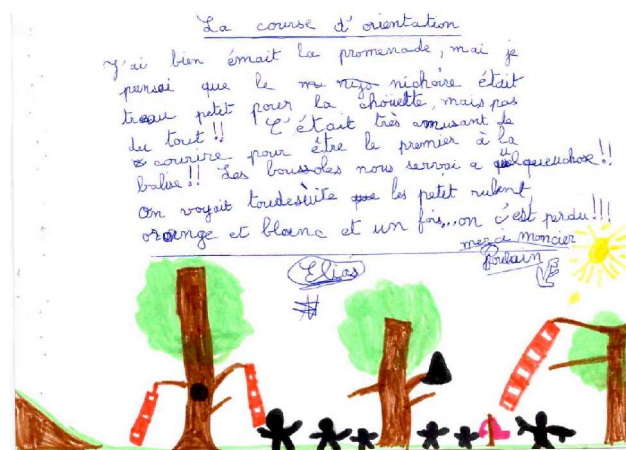 La course d'orientation
J'ai bien émait la promenade, mai je
pensai que le nichoire était
trau petit pour la chouette, mais pas
du tout!! C'était très amusant de
courire pour être le premier à la
balise!! Les boussoles nous servai a quelqueuchose!!
On voyait toudesuite les petit ruben
orange et blanc et un fois...on c'est perdu!!!
merci moncier
Poulain
Elias